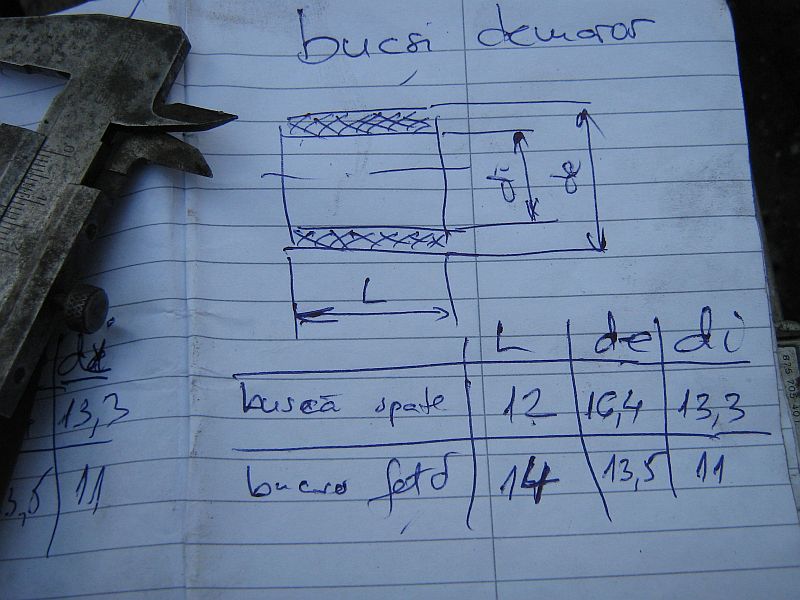 bucși demaror
di de
L
L de di
bucșă spate 12 16,4 13,3
bucșa față 14 13,5 11
di
13,3
3,5 11